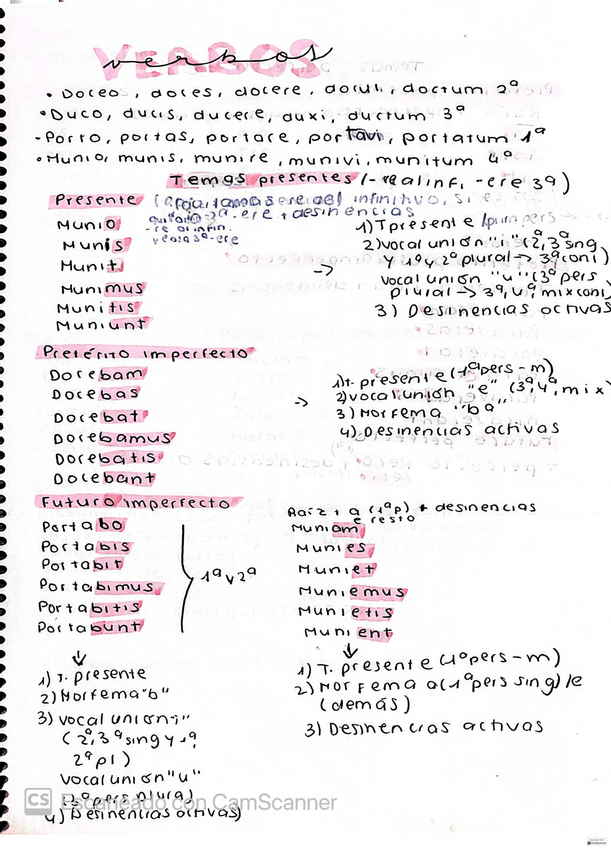 VERBOS
verbos
• Doceo, doces, docere, docui, doctum 2ª
• Duco, ducis, ducere, duxi, ductum 3ª
- Porto, portas, portare, portavi, portatum 1ª
• Munio, munis, munire, munivi, munitum 4ª
Temas presentes (-re al inf, -ere 3ª)
Presente
quitando
-re al infin.
verbo 3ª-ere
-ere + desinencias
Munio
Munis
Munit
Munimus
Munitis
Muniunt
→
1) T presente
2) vocal unión "i" (2ª, 3ª sing
y 1ª y 2ª plural → 3ª conj)
vocal unión "u" (3ª pers
plural → 3ª, 4ª, mix conj)
3) Desinencias activas
Pretérito imperfecto
Docebam
Docebas
Docebat
Docebamus
Docebatis
Docebant
→
1) t. presente (1ª pers - m)
2) vocal unión "e" (3ª, 4ª, mix)
3) Morfema "ba"
4) Desinencias activas
Futuro imperfecto
Portabo
Portabis
Portabit
Portabimus
Portabitis
Portabunt
1ª y 2ª
↓
1) T. presente
2) Morfema "b"
3) vocal unión "i"
(2ª, 3ª sing y 1ª,
2ª pl)
vocal unión "u"
(3ª pers plural)
4) Desinencias activas)
Raíz + a (1ªp) + desinencias
e resto
Muniam
Munies
Muniet
Muniemus
Munietis
Munient
↓
1) T. presente (1ª pers - m)
2) Morfema a (1ª pers sing)/e
(demás)
3) Desinencias activas
CS Escaneado con CamScanner